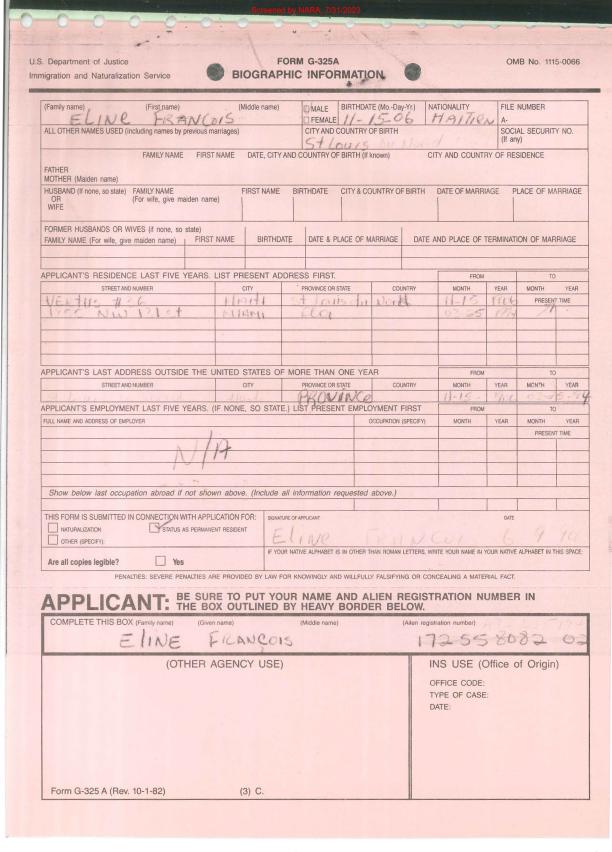 Screened by NARA, 7/31/2023
U.S. Department of Justice
Immigration and Naturalization Service
FORM G-325A
BIOGRAPHIC INFORMATION
OMB No. 1115-0066
(Family name) (First name) (Middle name)
ELINE FRANÇOIS
MALE
FEMALE
BIRTHDATE (Mo.-Day-Yr.)
11-15-06
NATIONALITY
HAITIEN
FILE NUMBER
A-
ALL OTHER NAMES USED (Including names by previous marriages)
CITY AND COUNTRY OF BIRTH
St Louis du Nord
SOCIAL SECURITY NO.
(If any)
FAMILY NAME FIRST NAME DATE, CITY AND COUNTRY OF BIRTH (If known) CITY AND COUNTRY OF RESIDENCE
FATHER
MOTHER (Maiden name)
HUSBAND (If none, so state) FAMILY NAME FIRST NAME BIRTHDATE CITY & COUNTRY OF BIRTH DATE OF MARRIAGE PLACE OF MARRIAGE
OR (For wife, give maiden name)
WIFE
FORMER HUSBANDS OR WIVES (if none, so state)
FAMILY NAME (For wife, give maiden name) FIRST NAME BIRTHDATE DATE & PLACE OF MARRIAGE DATE AND PLACE OF TERMINATION OF MARRIAGE
APPLICANT'S RESIDENCE LAST FIVE YEARS. LIST PRESENT ADDRESS FIRST. FROM TO
STREET AND NUMBER CITY PROVINCE OR STATE COUNTRY MONTH YEAR MONTH YEAR
# 6 Haiti St Louis du Nord 11-15 PRESENT TIME
NW MIAMI
APPLICANT'S LAST ADDRESS OUTSIDE THE UNITED STATES OF MORE THAN ONE YEAR FROM TO
STREET AND NUMBER CITY PROVINCE OR STATE COUNTRY MONTH YEAR MONTH YEAR
PROVINCE 11-15-
APPLICANT'S EMPLOYMENT LAST FIVE YEARS. (IF NONE, SO STATE.) LIST PRESENT EMPLOYMENT FIRST FROM TO
FULL NAME AND ADDRESS OF EMPLOYER OCCUPATION (SPECIFY) MONTH YEAR MONTH YEAR
PRESENT TIME
N/A
Show below last occupation abroad if not shown above. (Include all information requested above.)
THIS FORM IS SUBMITTED IN CONNECTION WITH APPLICATION FOR:
NATURALIZATION STATUS AS PERMANENT RESIDENT
OTHER (SPECIFY):
SIGNATURE OF APPLICANT DATE
Eline François 6 9
IF YOUR NATIVE ALPHABET IS IN OTHER THAN ROMAN LETTERS, WRITE YOUR NAME IN YOUR NATIVE ALPHABET IN THIS SPACE:
Are all copies legible? Yes
PENALTIES: SEVERE PENALTIES ARE PROVIDED BY LAW FOR KNOWINGLY AND WILLFULLY FALSIFYING OR CONCEALING A MATERIAL FACT.
APPLICANT: BE SURE TO PUT YOUR NAME AND ALIEN REGISTRATION NUMBER IN
THE BOX OUTLINED BY HEAVY BORDER BELOW.
COMPLETE THIS BOX (Family name) (Given name) (Middle name) (Alien registration number)
ELINE FRANÇOIS 172 558082 02
(OTHER AGENCY USE)
INS USE (Office of Origin)
OFFICE CODE:
TYPE OF CASE:
DATE:
Form G-325 A (Rev. 10-1-82) (3) C.